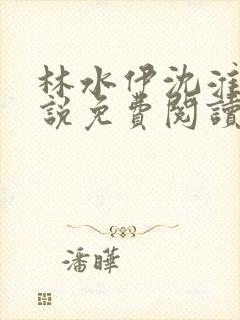 林水伊沈淮
説免費閱讀
潘曄